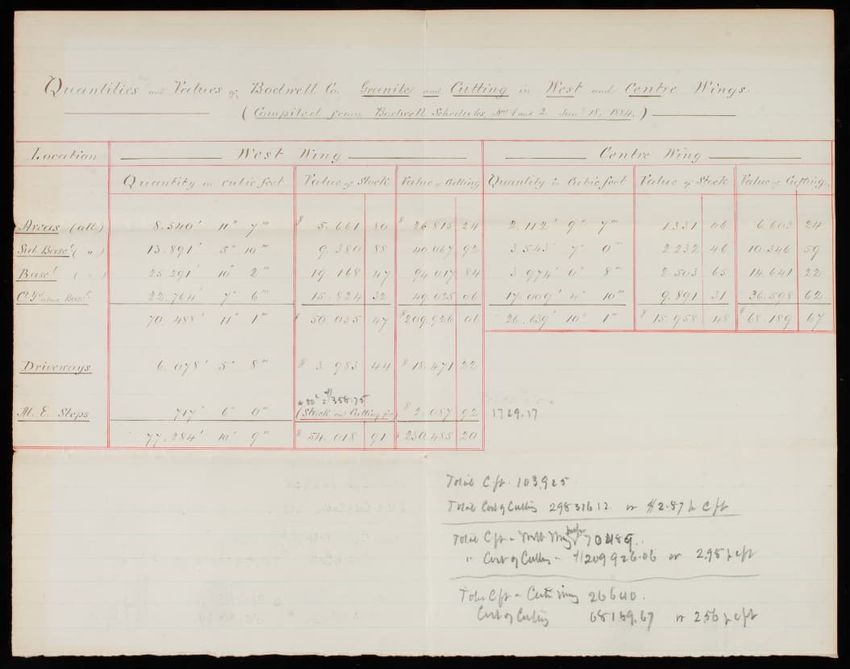 Quantities and Values of Bodwell Co. Granite and Cutting in West and Centre Wings
(Compiled from Bodwell Schedules Nos 1 and 2. Jany 18. 1884.)
Location West Wing Centre Wing
Quantity in cubic feet Value of Stock Value of Cutting Quantity in Cubic feet Value of Stock Value of Cutting
Areas (all) 8.540' 11" 7''' $ 5.661 80 $ 26.815 24 2.112' 9" 7''' 1331 06 6.603 24
Sub Basemt ( " ) 13.891' 5" 10''' 9.380 88 40.067 92 3.543' 7" 0''' 2.232 46 10.346 59
Basemt ( " ) 25.291' 10" 2''' 19.168 47 94.017 84 3.974' 0" 8''' 2.503 65 14.641 22
22.764' 7" 6''' 15.824 32 49.025 06 17.009' 4" 10''' 9.891 31 36.598 62
70.488' 11" 1''' $ 50.035 47 $209.926 06 26.639' 10" 1''' $ 15.958 48 $ 68.189 67
Driveways 6.078' 5" 8''' $ 3.983 44 $ 18.471 22
$358.75
M. E. Steps 717' 6" 0''' (Stock and Cutting $ 2.087 92 1729.17
77.284' 10" 9''' $ 54.018 91 $ 230.485 20
Total C ft. 103,925
Total Cost of Cutting 298316.12. or $2.87 p C ft
Total C ft - West Wing 70489.
" Cost of Cutting - $209926.06 or 2.98 p c ft
Total C ft - Centre Wing 26640.
Cost of Cutting 68189.67 or 256 p c ft